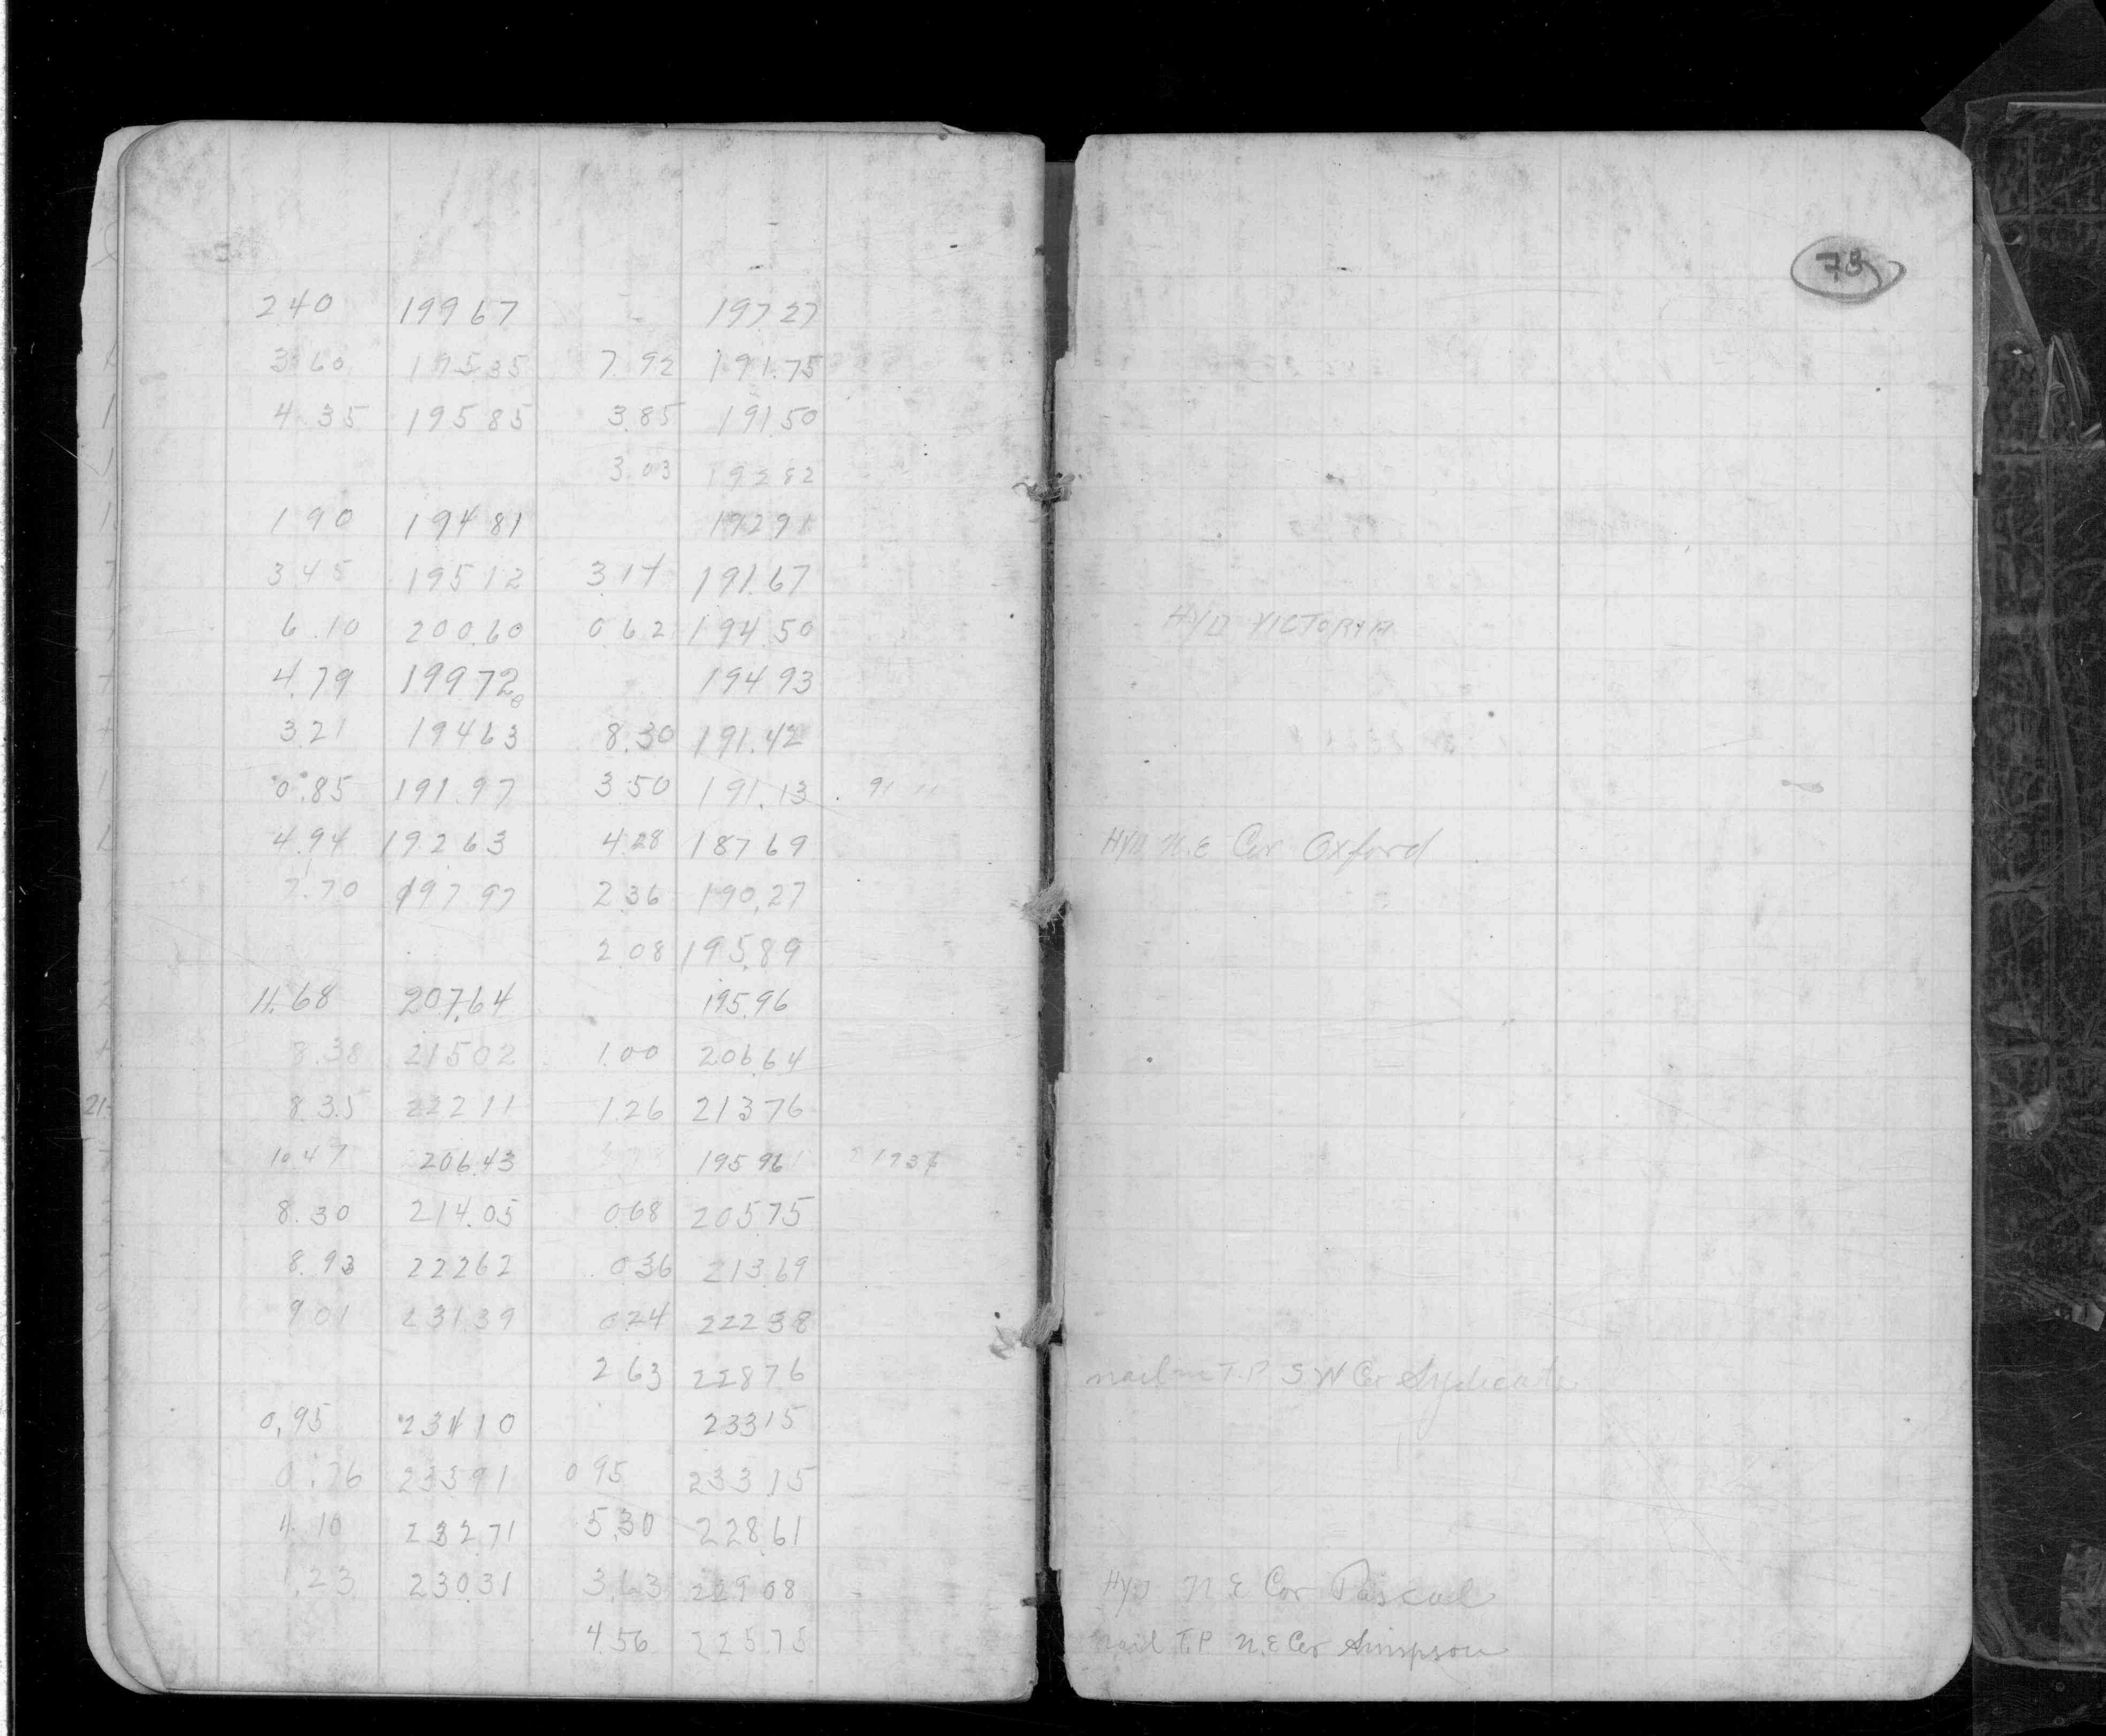 73
2.40 199.67 197.27
3.60 195.35 7.92 191.75
4.35 195.85 3.85 191.50
3.03 192.82
1.90 194.81 192.91
3.45 195.12 3.14 191.67
6.10 200.60 0.62 194.50 HYD VICTORIA
4.79 199.72 194.93
3.21 194.63 8.30 191.42
0.85 191.97 3.50 191.13
4.94 192.63 4.28 187.69 HYD N.E Cor Oxford
7.70 197.97 2.36 190.27
2.08 195.89
11.68 207.64 195.96
8.38 215.02 1.00 206.64
8.35 222.11 1.26 213.76
10.47 206.43 195.96
8.30 214.05 0.68 205.75
8.93 222.62 0.36 213.69
9.01 231.39 0.24 222.38
2.63 228.76 nail in T.P S W Cor Syndicate
0.95 234.10 233.15
0.76 233.91 0.95 233.15
4.10 232.71 5.30 228.61
1.23 230.31 3.63 229.08 HYD N E Cor Pascal
4.56 225.75 nail T.P. N.E Cor Simpson